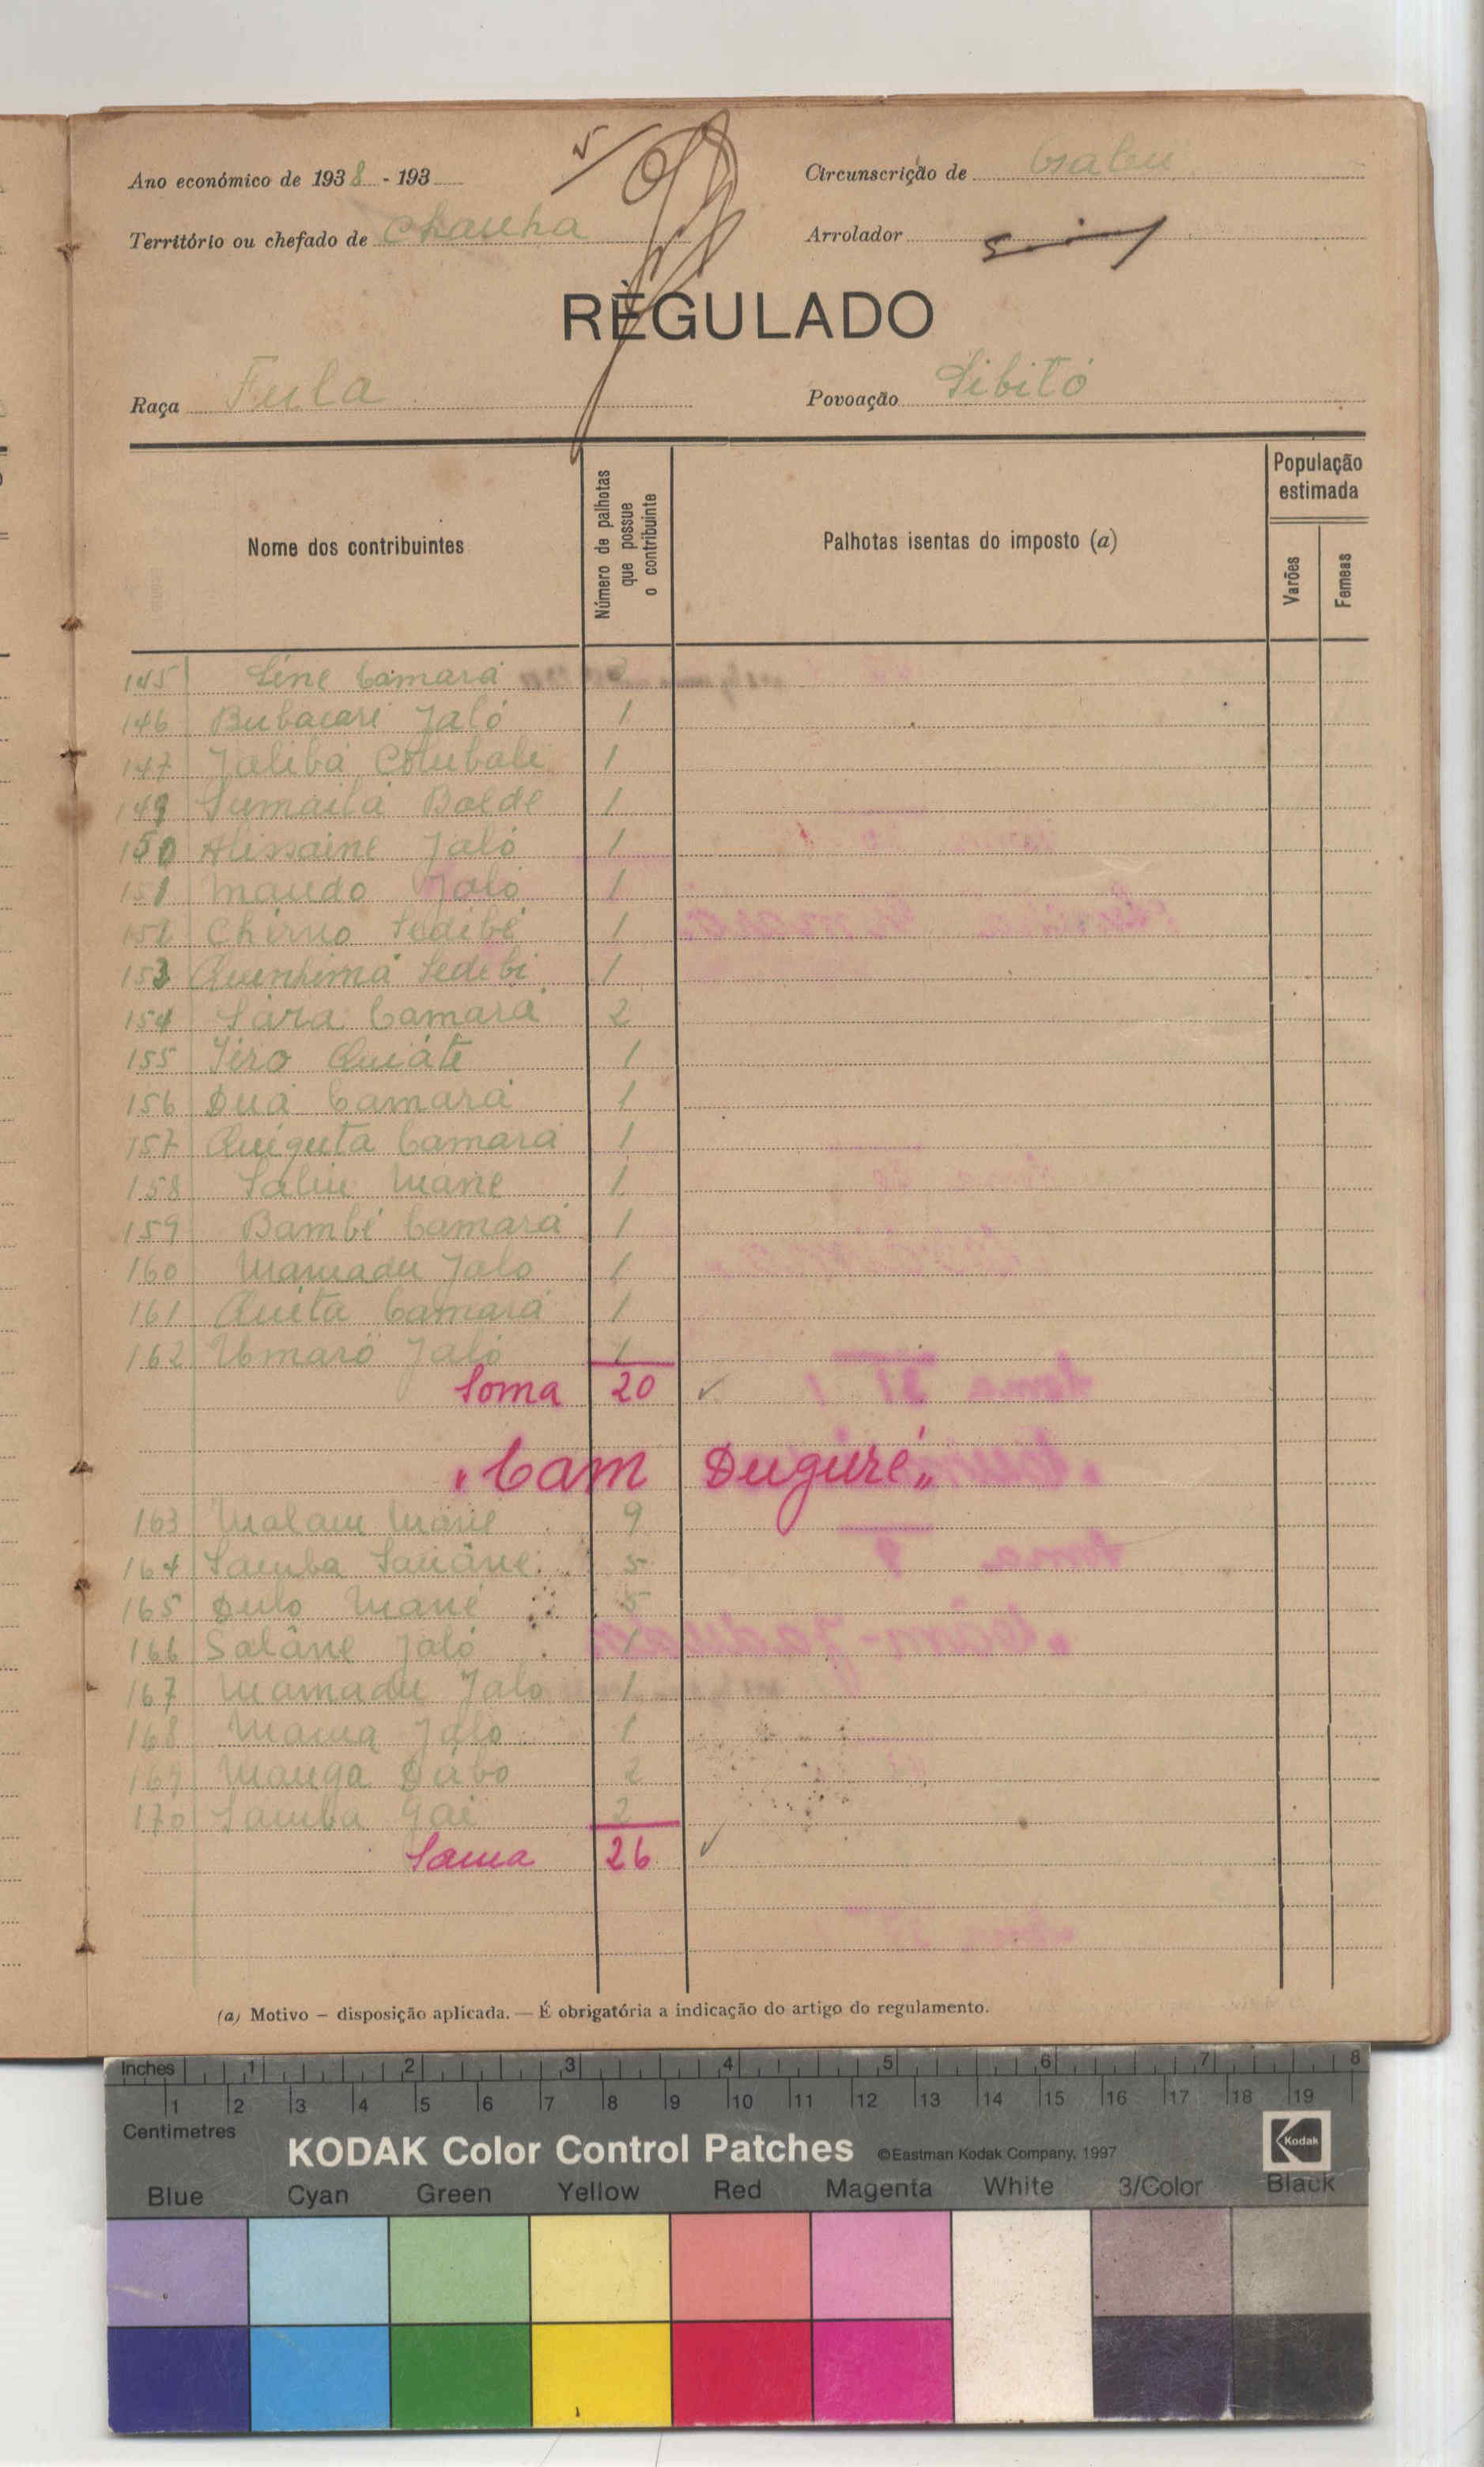 Ano económico de 1938 - 193
Circunscrição de Gabu
Território ou chefado de Chanha
Arrolador
REGULADO
Raça Fula
Povoação Sibitó
Nome dos contribuintes
Número de palhotas que possue o contribuinte
Palhotas isentas do imposto (a)
População estimada
Varões
Femeas
145 Sene Camará
146 Bubacari Jaló 1
147 Jalibá Colubali 1
149 Sumailá Balde 1
150 Alissaine Jaló 1
151 Maudo Jaló 1
152 Chérno Sedibé 1
153 Sedebi 1
154 Sara Camará 2
155 Jéro Quiáte 1
156 Duá Camará 1
157 Quiguta Camará 1
158 Saliu Mané 1
159 Bambé Camará 1
160 Mamadu Jalo 1
161 Quitá Camará 1
162 Umaro Jaló 1
Soma 20
"Cam Duguré"
163 Malam Mané 9
164 Samba Sauâne 5
165 Dulo Mané 5
166 Salâne Jaló 1
167 Mamadu Jalo 1
168 Mama Jalo 1
169 Manga Dábo 2
170 Samba Gai 2
Soma 26
(a) Motivo — disposição aplicada. — É obrigatória a indicação do artigo do regulamento.
Inches 1 2 3 4 5 6 7 8
1 2 3 4 5 6 7 8 9 10 11 12 13 14 15 16 17 18 19
Centimetres
KODAK Color Control Patches ©Eastman Kodak Company, 1997 Kodak
Blue Cyan Green Yellow Red Magenta White 3/Color Black